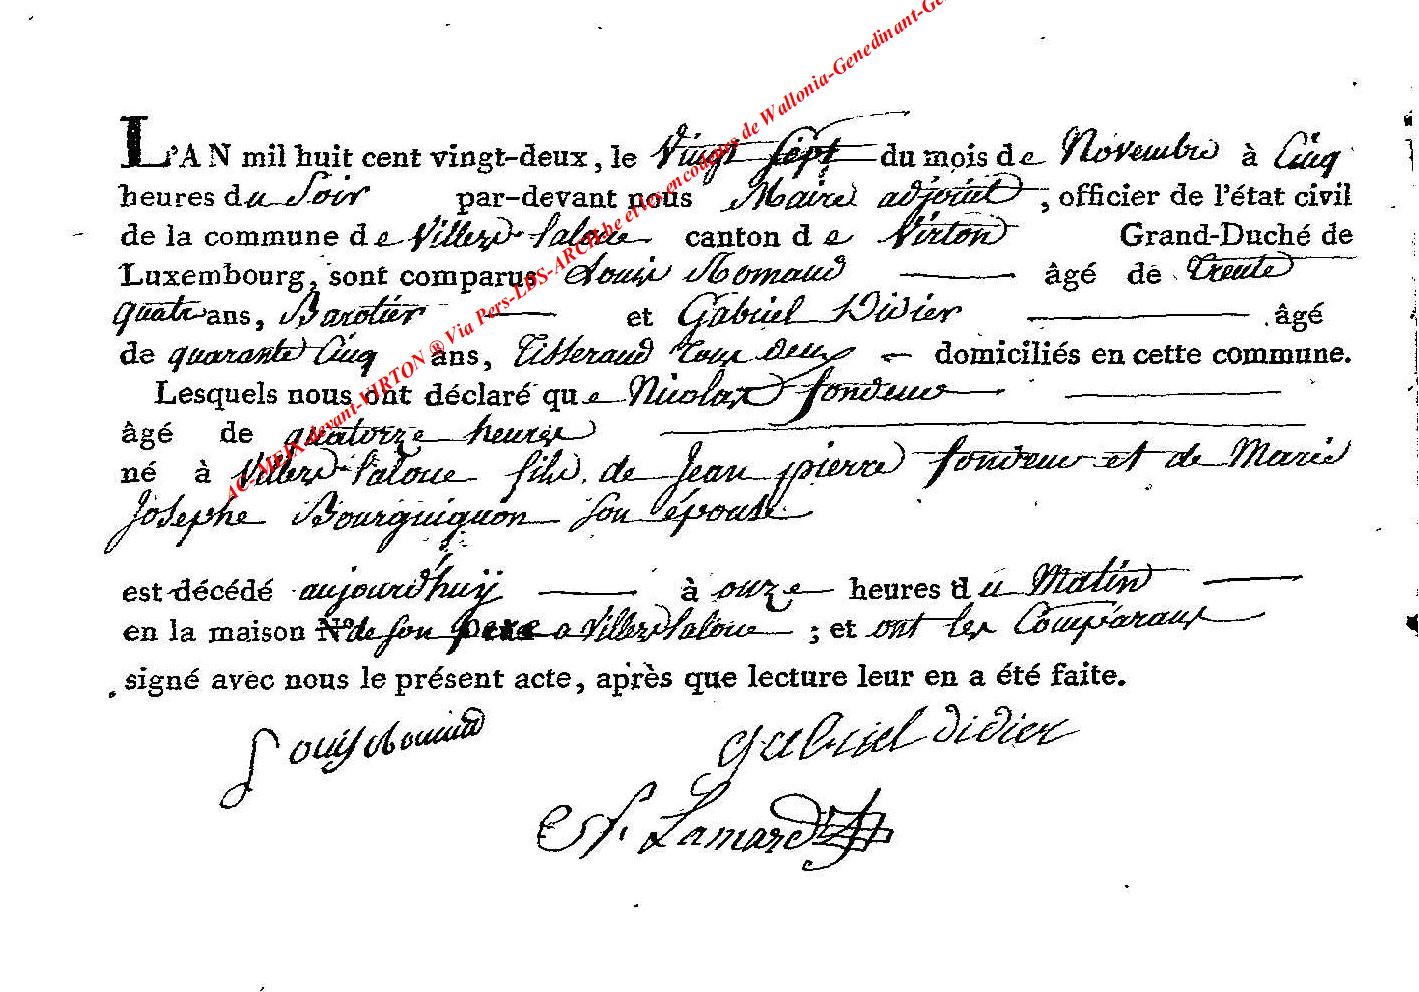 L'AN mil huit cent vingt-deux, le Vingt Sept du mois de Novembre à Cinq
heures du Soir par-devant nous Maire adjoint, officier de l'état civil
de la commune de Villers-laloue canton de Virton Grand-Duché de
Luxembourg, sont comparus Louis âgé de trente
quatre ans, et Gabriel Didier âgé
de quarante Cinq ans, Tisserand tous deux domiciliés en cette commune.
Lesquels nous ont déclaré que Nicolas fondeur
âgé de quatorze heures
né à Villers-laloue fils de Jean pierre fondeur et de Marie
Josephe Bourguignon son épouse
est décédé aujourd'huÿ à onze heures du Matin
en la maison N.º de son pere a Villers laloue ; et ont les Comparans
signé avec nous le présent acte, après que lecture leur en a été faite.
Louis
gabriel didier
Lamard
ACTE MEIX-devant-VIRTON ® Via Pers-LDS-ARCH.be et les encodeurs de Wallonia-Genedinant-Ge